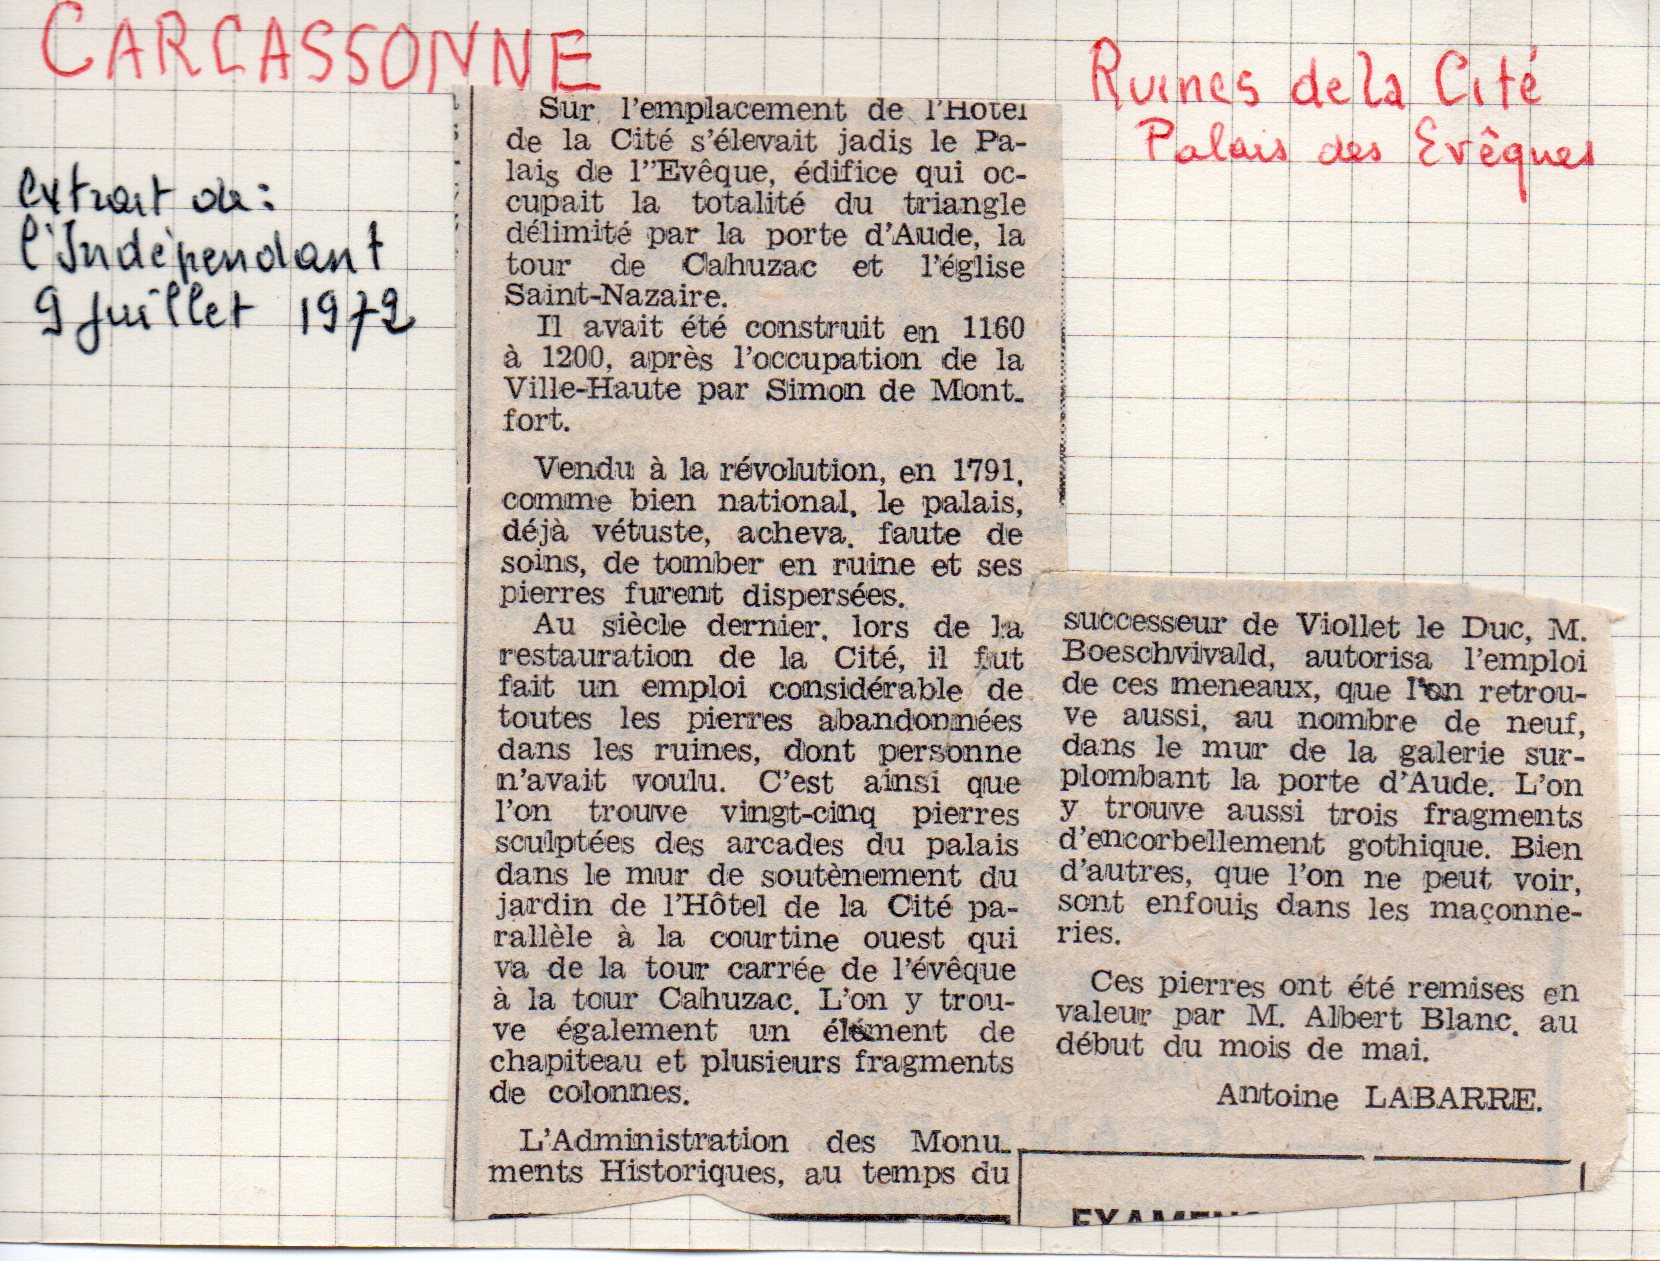 CARCASSONNE
Ruines de la Cité
Palais des Evêques
extrait de :
l'Indépendant
9 juillet 1972
Sur l'emplacement de l'Hôtel
de la Cité s'élevait jadis le Pa-
lais de l''Evêque, édifice qui oc-
cupait la totalité du triangle
délimité par la porte d'Aude, la
tour de Cahuzac et l'église
Saint-Nazaire.
Il avait été construit en 1160
à 1200, après l'occupation de la
Ville-Haute par Simon de Mont-
fort.
Vendu à la révolution, en 1791,
comme bien national, le palais,
déjà vétuste, acheva, faute de
soins, de tomber en ruine et ses
pierres furent dispersées.
Au siècle dernier, lors de la
restauration de la Cité, il fut
fait un emploi considérable de
toutes les pierres abandonnées
dans les ruines, dont personne
n'avait voulu. C'est ainsi que
l'on trouve vingt-cinq pierres
sculptées des arcades du palais
dans le mur de soutènement du
jardin de l'Hôtel de la Cité pa-
rallèle à la courtine ouest qui
va de la tour carrée de l'évêque
à la tour Cahuzac. L'on y trou-
ve également un élément de
chapiteau et plusieurs fragments
de colonnes.
L'Administration des Monu-
ments Historiques, au temps du
successeur de Viollet le Duc, M.
Boeschvivald, autorisa l'emploi
de ces meneaux, que l'on retrou-
ve aussi, au nombre de neuf,
dans le mur de la galerie sur-
plombant la porte d'Aude. L'on
y trouve aussi trois fragments
d'encorbellement gothique. Bien
d'autres, que l'on ne peut voir,
sont enfouis dans les maçonne-
ries.
Ces pierres ont été remises en
valeur par M. Albert Blanc, au
début du mois de mai.
Antoine LABARRE.